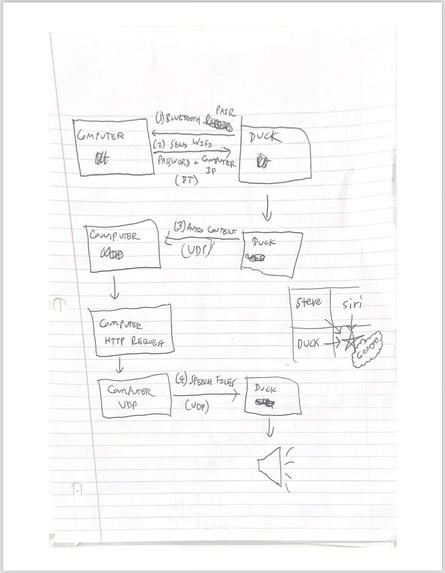 (1) BLUETOOTH PAIR
COMPUTER
DUCK
(2) SEND WIFI
PASSWORD + COMPUTER
IP
(BT)
COMPUTER
(3) AUDIO CONTENT
(UDP)
DUCK
COMPUTER
HTTP REQUEST
Steve
siri
DUCK
COMPUTER
UDP
(4) SPEECH FILES
(UDP)
DUCK